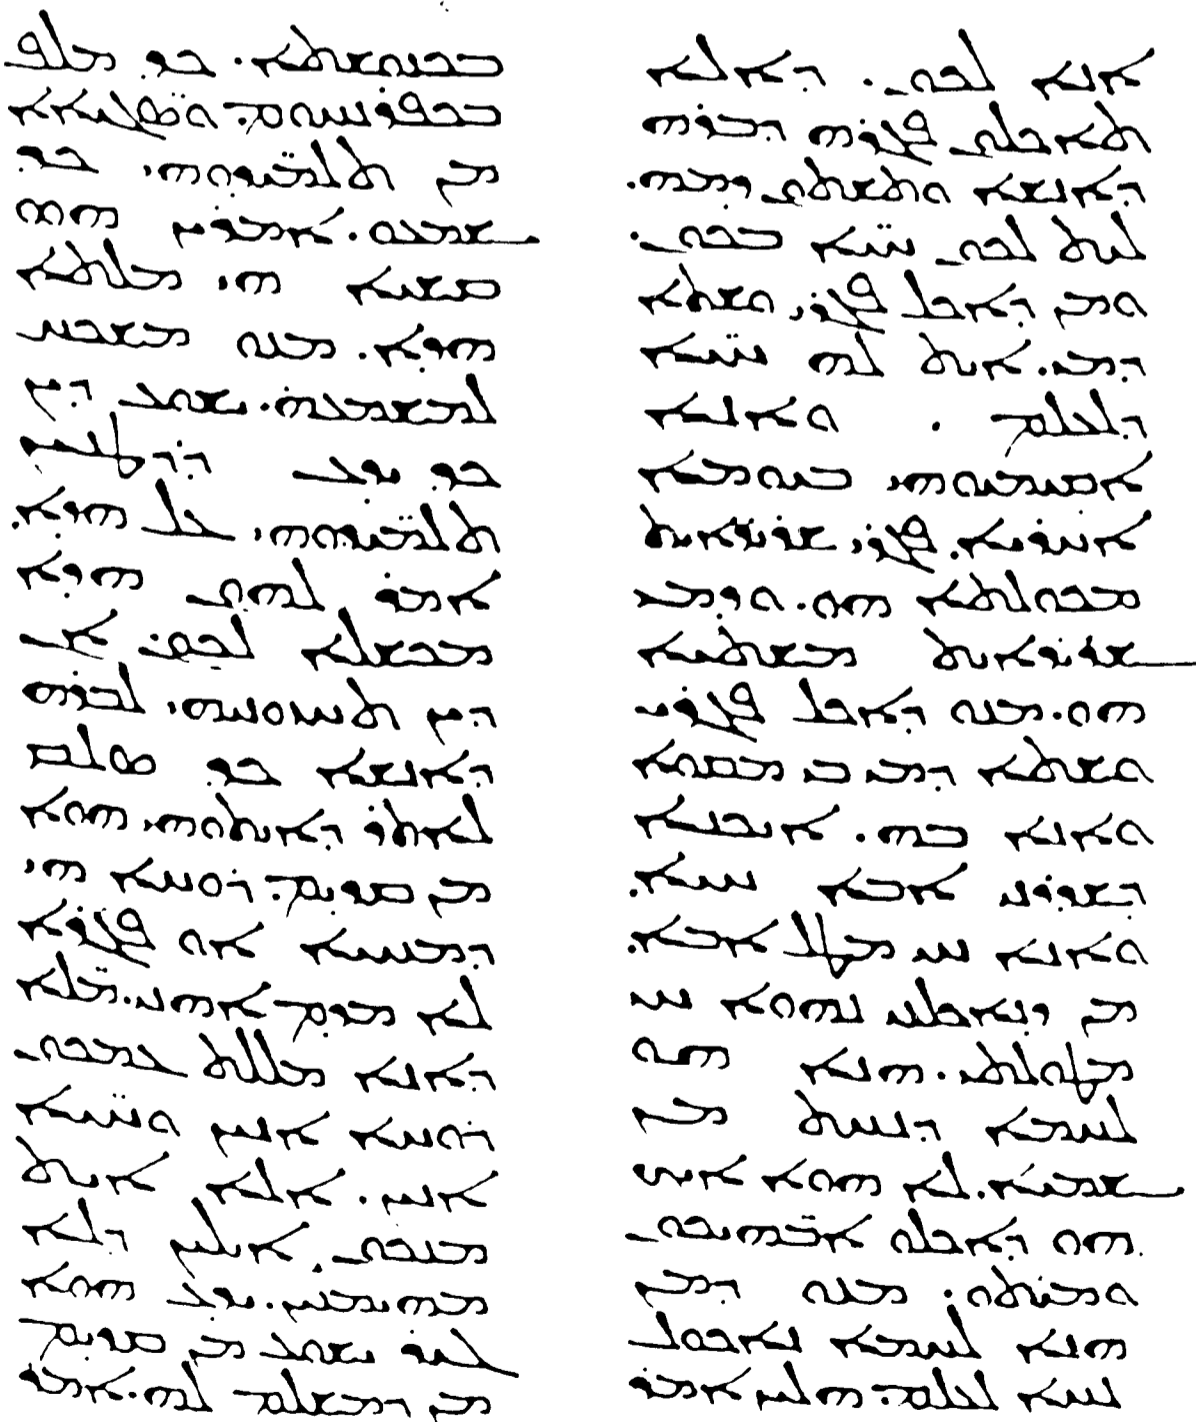 ܐܢܐ ܠܟܘܢ. ܕܐܠܐ
ܬܐܟܠܘܢ ܦܓܪܗ ܕܒܪܗ
ܕܐܢܫܐ ܘܬܫܬܘܢ ܕܡܗ.
ܠܝܬ ܠܟܘܢ ܚܝ̈ܐ ܒܟܘܢ.
ܘܡܢ ܕܐܟܠ ܦܓܪܝ ܘܫܬܐ
ܕܡܝ. ܐܝܬ ܠܗ ܚܝ̈ܐ
ܕܠܥܠܡ . ܘܐܢܐ
ܐܩܝܡܝܘܗܝ ܒܝܘܡܐ
ܐܚܪܝܐ. ܦܓܪܝ ܫܪܝܪܐܝܬ
ܡܟܘܠܬܐ ܗܘ. ܘܕܡܝ
ܫܪܝܪܐܝܬ ܡܫܬܝܐ
ܗܘ. ܡܢܘ ܕܐܟܠ ܦܓܪܝ
ܘܫܬܐ ܕܡܝ ܒܝ ܡܩܘܐ
ܘܐܢܐ ܒܗ. ܐܝܟܢܐ
ܕܫܕܪܢܝ ܐܒܐ ܚܝܐ.
ܘܐܢܐ ܚܝ ܡܛܠ ܐܒܐ.
ܡܢ ܕܢܐܟܠܢܝ ܢܗܘܐ ܚܝ
ܡܛܘܠܬܝ. ܗܢܐ ܗܘ
ܠܚܡܐ ܕܢܚܬ ܡܢ
ܫܡܝܐ. ܠܐ ܗܘܐ ܐܝܟ
ܗܘ ܕܐܟܠܘ ܐܒ̈ܗܝܟܘܢ
ܘܡܝܬܘ. ܡܢܘ ܕܡܢ
ܗܢܐ ܠܚܡܐ ܢܐܟܘܠ
ܢܚܐ ܠܥܠܡ. ܗܠܝܢ ܐܡܪ
ܒܟܢܘܫܬܐ. ܟܕ ܡܠܦ
ܒܟܦܪܢܚܘܡ. ܘܣ̈ܓܝܐܐ
ܡܢ ܬܠܡܝ̈ܕܘܗܝ ܟܕ
ܫܡܥܘ. ܐܡܪܝܢ ܗܘܘ
ܩܫܝܐ ܗܝ ܡܠܬܐ
ܗܕܐ. ܡܢܘ ܡܫܟܚ
ܠܡܫܡܥܗ. ܝܫܘܥ ܕܝܢ
ܟܕ ܝܕܥ ܕܪܛܢܝܢ
ܬܠܡܝ̈ܕܘܗܝ ܥܠ ܗܕܐ.
ܐܡܪ ܠܗܘܢ ܗܕܐ
ܡܟܫܠܐ ܠܟܘܢ. ܐܢ
ܕܝܢ ܬܚܙܘܢܝܗܝ ܠܒܪܗ
ܕܐܢܫܐ ܟܕ ܣܠܩ
ܠܐܬܪ ܕܐܝܬܘܗܝ ܗܘܐ
ܡܢ ܩܕܝܡ. ܪܘܚܐ ܗܝ
ܕܡܚܝܐ ܐܘ ܦܓܪܐ
ܠܐ ܡܕܡ ܐܗܢܝ. ܡ̈ܠܐ
ܕܐܢܐ ܡܠܠܬ ܥܡܟܘܢ
ܪܘܚܐ ܐܢܝܢ ܘܚܝ̈ܐ
ܐܢܝܢ. ܐܠܐ ܐܝܬ
ܡܢܟܘܢ ܐܝܠܝܢ ܕܠܐ
ܡܗܝܡܢܝܢ. ܝܕܥ ܗܘܐ
ܓܝܪ ܝܫܘܥ ܡܢ ܩܕܝܡ
ܡܢ ܕܡܫܠܡ ܠܗ. ܐܡܪ